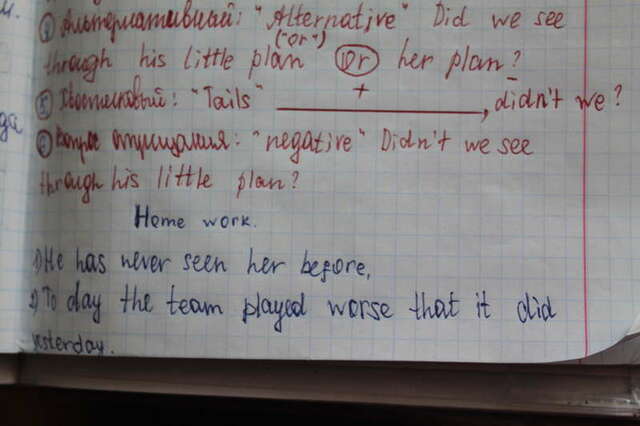 ④ Альтернативный: "Alternative" Did we see
("or")
through his little plan or her plan?
⑤ Хвостиковый: "Tails" + , didn't we?
⑥ Вопрос отрицания: "negative" Didn't we see
through his little plan?
Home work.
1) He has never seen her before,
2) To day the team played worse that it did
yesterday.